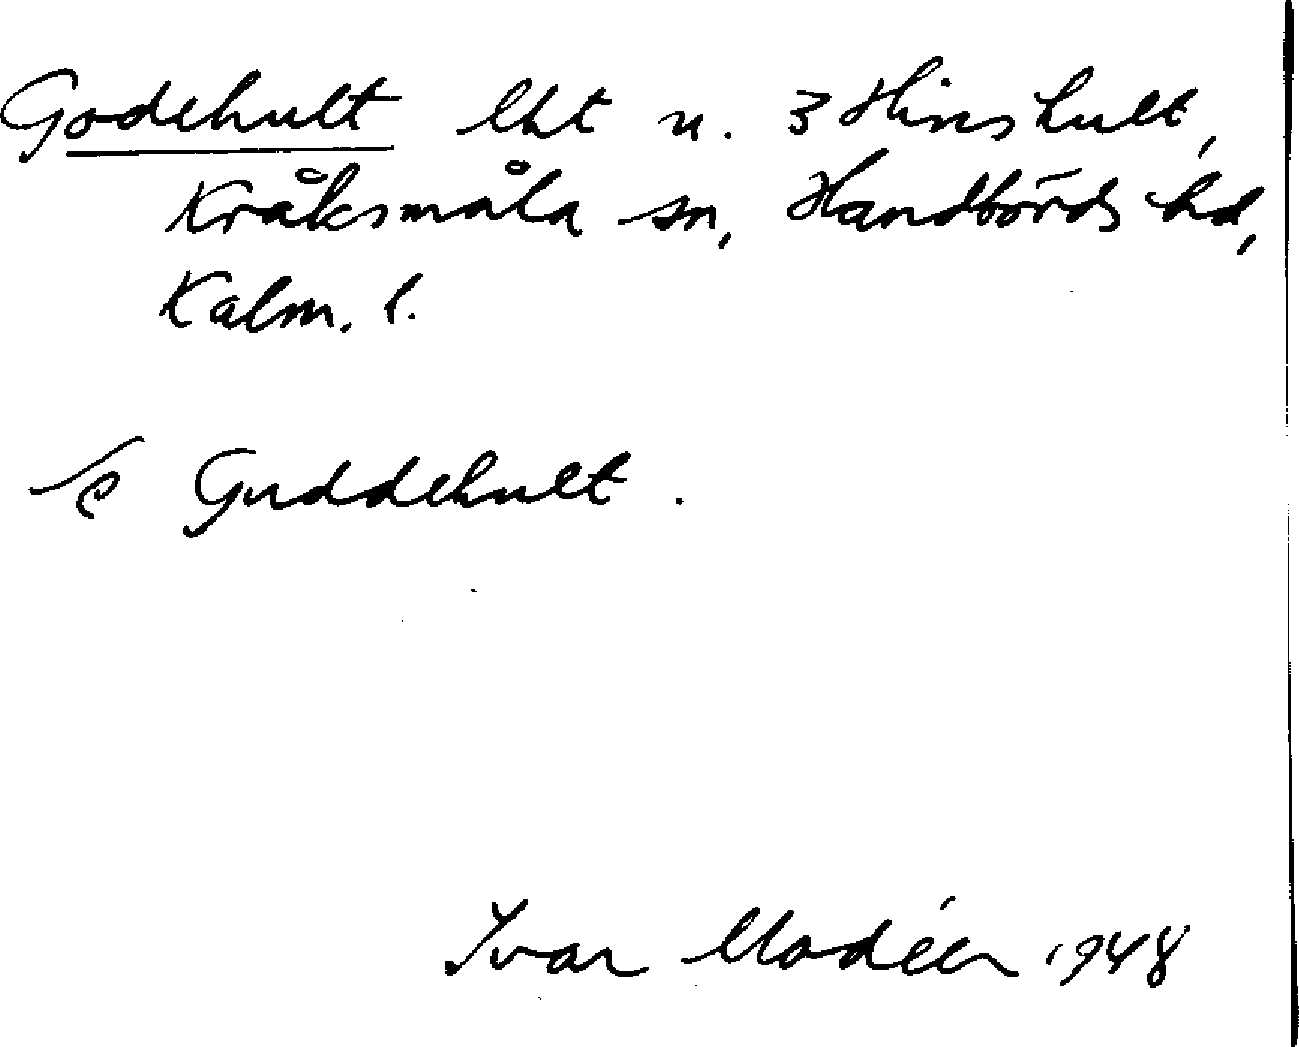 Godehult lht u. 3 Hinshult,
Kråksmåla sn, Handbörds hd,
Kalm. l.
Guddehult.
Ivar Modéer 1948